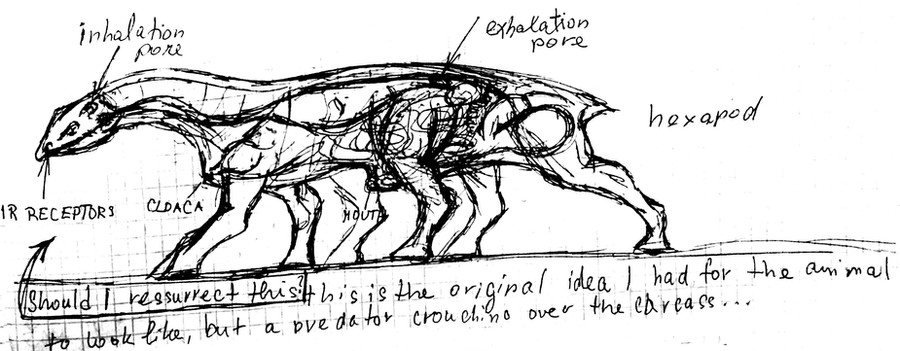 inhalation
pore
exhalation
pore
hexapod
IR RECEPTORS
CLOACA
MOUTH
Should I ressurrect this? this is the original idea I had for the animal
to look like, but a predator crouching over the carcass...